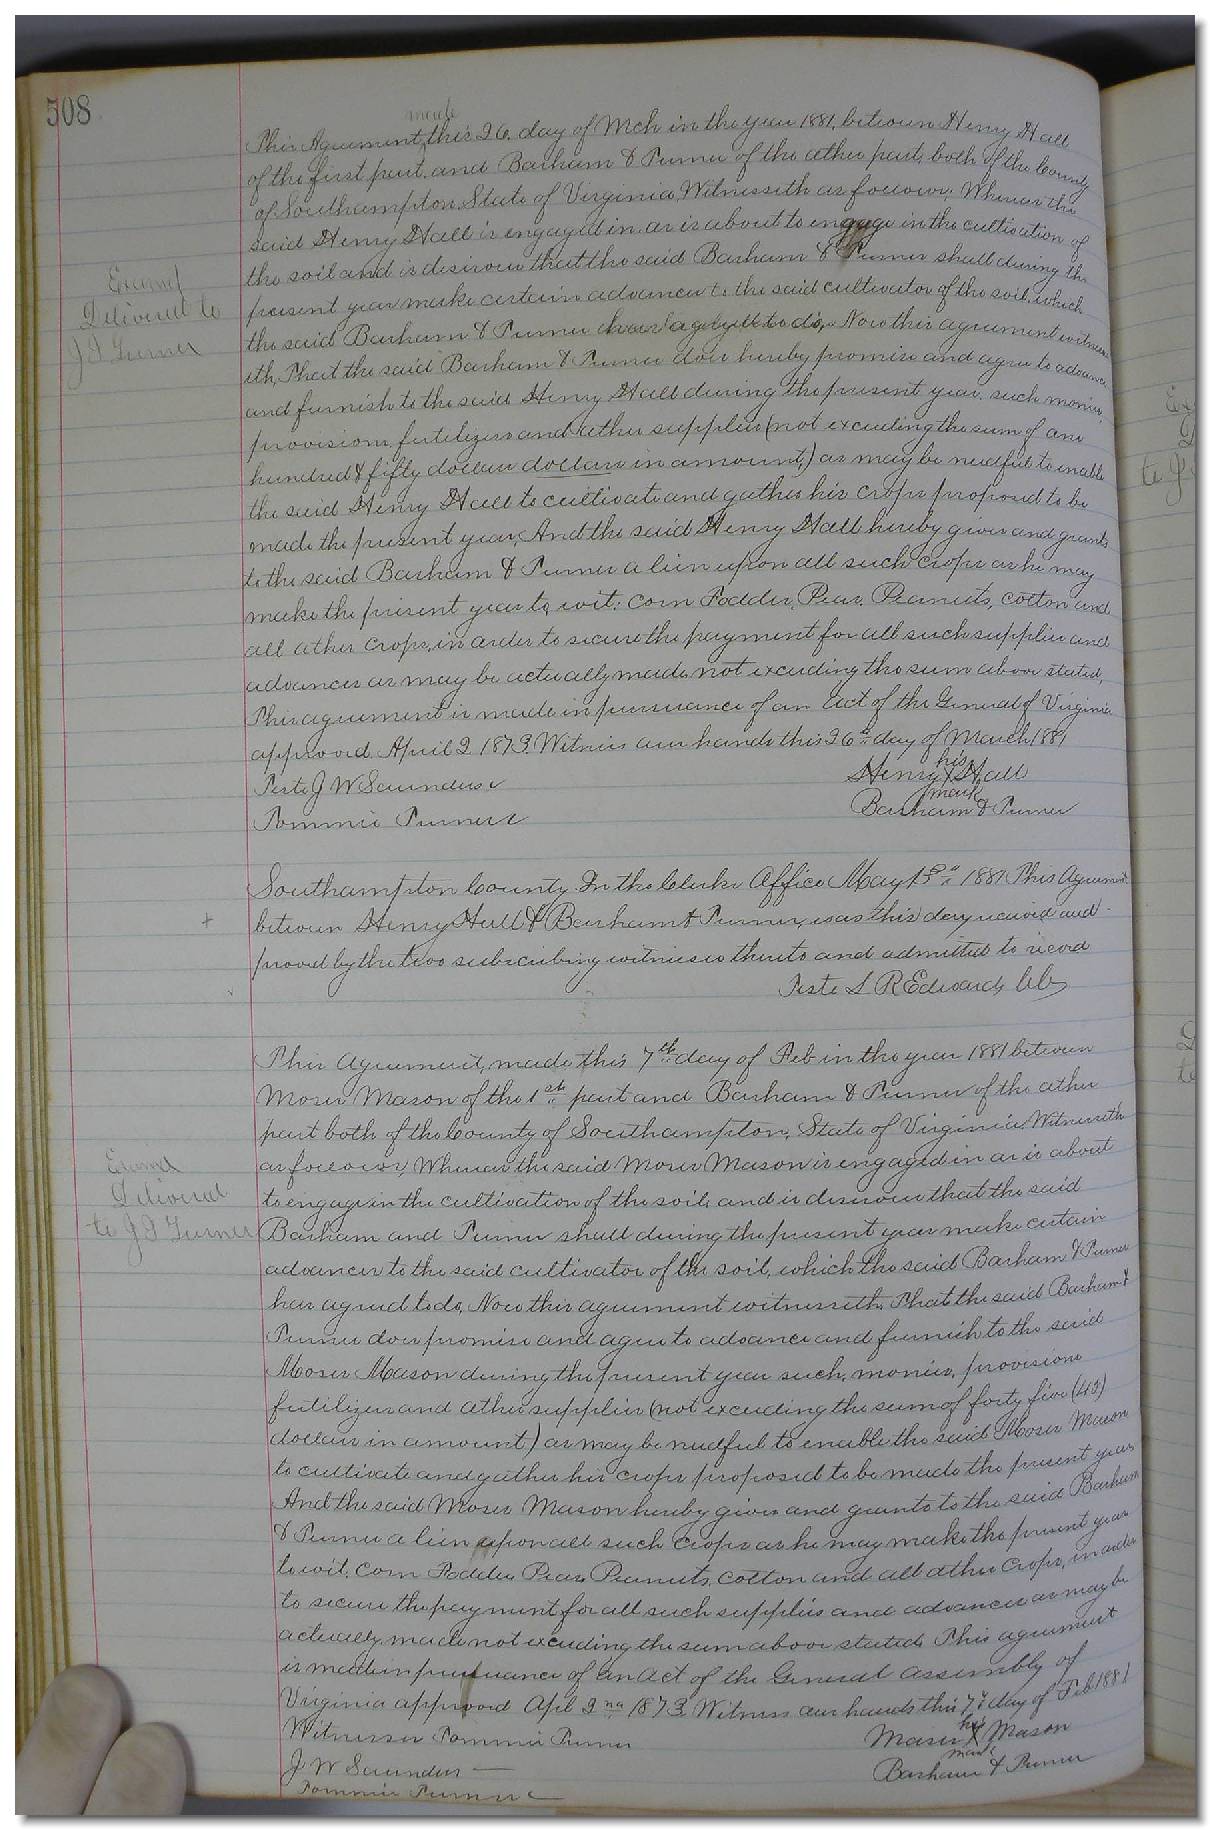 508
made
This Agreement, this 26. day of Mch in the year 1881, between Henry Hall
of the first part, and Barham & Purner of the other part, both of the County
of Southampton State of Virginia, Witnesseth as follows; Whereas the
said Henry Hall is engaged in or is about to engage in the cultivation of
the soil and is desirous that the said Barham & Purner shall during the
present year make certain advances to the said cultivator of the soil, which
the said Barham & Purner have agreed to do, Now this agreement witness
eth, That the said Barham & Purner does hereby promise and agree to advance
and furnish to the said Henry Hall during the present year, such monies,
provisions, fertilizers and other supplies (not exceeding the sum of one
hundred & fifty dollars dollars in amount,) as may be needful to enable
the said Henry Hall to cultivate and gather his crops proposed to be
made the present year, And the said Henry Hall hereby gives and grants
to the said Barham & Purner a lien upon all such crops as he may
make the present year to wit: corn Fodder, Peas, Peanuts, cotton and
all other crops, in order to secure the payment for all such supplies and
advances as may be actually made not exceeding the sum above stated,
This agreement is made in pursuance of an act of the General of Virginia
approved April 2 1873. Witness our hands this 26th day of March 1881
Teste J W Saunders
Tommie Purner
his
Henry X Hall
mark
Barham & Purner
Exam'd
Delivered to
J J Turner
Southampton County In the Clerks Office May 13th 1881 This Agreement
between Henry Hall & Barham & Purner, was this day received and
proved by the two subscribing witnesses thereto and admitted to record
Teste L R Edwards CC
This Agreement, made this 7th day of Feb in the year 1881 between
Moses Mason of the 1st part and Barham & Purner of the other
part both of the County of Southampton, State of Virginia Witnesseth
as follows; Whereas the said Moses Mason is engaged in or is about
to engage in the cultivation of the soil, and is desirous that the said
Barham and Purner shall during the present year make certain
advances to the said cultivator of the soil, which the said Barham & Purner
has agreed to do, Now this agreement witnesseth, That the said Barham &
Purner does promise and agree to advance and furnish to the said
Moses Mason during the present year such, monies, provisions
fertilizers and other supplies (not exceeding the sum of forty five (45)
dollars in amount) as may be needful to enable the said Moses Mason
to cultivate and gather his crops proposed to be made the present year
And the said Moses Mason hereby gives and grants to the said Barham
& Purner a lien upon all such crops as he may make the present year
to wit, corn Fodder Peas, Peanuts, cotton and all other crops, in order
to secure the payment for all such supplies and advances as may be
actually made not exceeding the sum above stated, This agreement
is made in pursuance of an act of the General assembly of
Virginia approved Apl 2nd 1873, Witness our hands this 7th day of Feb 1881
Witnesses Tommie Purner
J W Saunders
Tommie Purner
his
Moses X Mason
mark
Barham & Purner
Exam'd
Delivered
to J J Turner